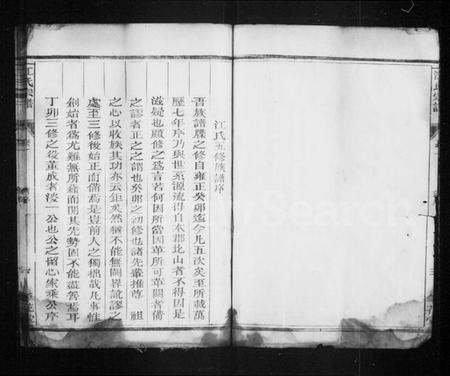 江氏五修族譜序
吾族譜牒之修自雍正癸卯迄今凡五次矣至所載萬
歷七年序乃與世系源流得自本郡北山者不得因是
滋疑也顧修之為言若何因所當因革所可革闕者備
之謬者正之之謂也癸卯之初修也諸先輩推尊 祖
之心以收族其功亦云鉅矣然猶不能無闕畧訛謬之
處至三修後始正而備焉是豈前人之獨拙哉凡事惟
創始者為尤難無所藉而開其先勢固不能盡善焉耳
丁卯三修之役董成者淩一公也公之 心 乘 序
江氏宗譜